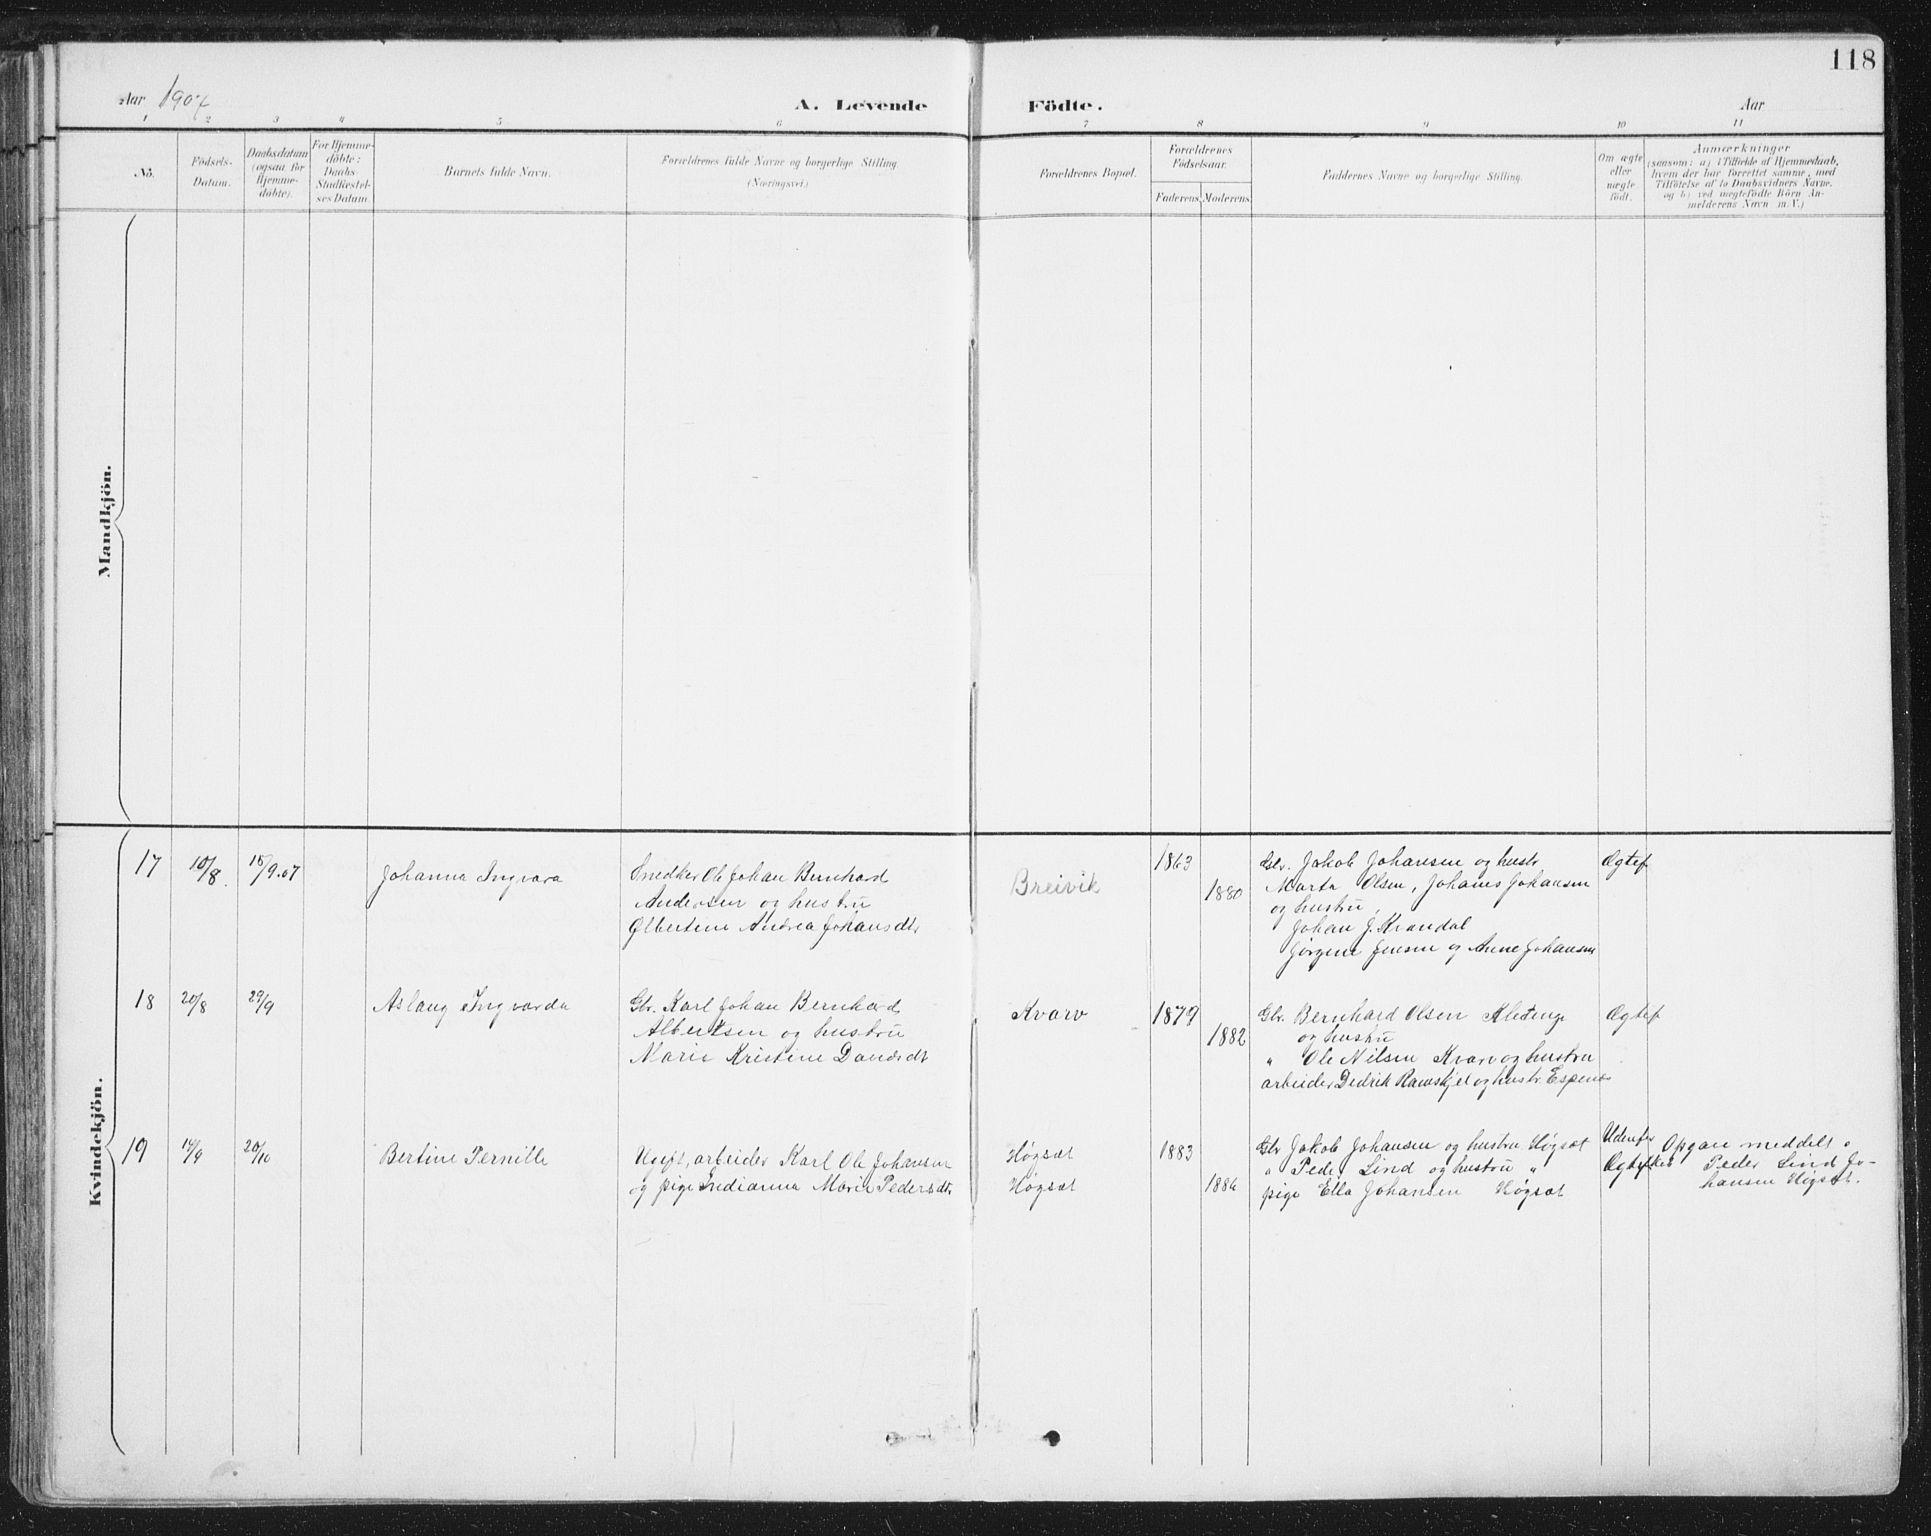 118
Aar 1907
A. Levende Födte.
Aar
1 2 3 4 5 6 7 8 9 10 11
No.
Födsels-
Datum.
Daabsdatum
(ogsaa for
Hjemme-
döbte).
For Hjemme-
döbte:
Daabs-
Stadfæstel-
ses Datum.
Barnets fulde Navn.
Forældrenes fulde Navne og borgerlige Stilling
(Næringsvei.)
Forældrenes Bopæl.
Forældrenes
Födselsaar.
Faderens. Moderens.
Faddernes Navne og borgerlige Stilling.
Om ægte
eller
uægte
födt.
Anmærkninger
(saasom: a) i Tilfælde af Hjemmedaab,
hvem der har forrettet samme, med
Tilföielse af to Daabsvidners Navne.
og b) ved uægtefödte Börn An-
melderens Navn m. V.)
Mandkjön.
Kvindekjön.
17 10/8 15/9.07 Johanna Ingvara
Snedker Ole Johan Bernhard
Andersen og hustru
Olbertine Andrea Johansdtr
Breivik
1863
1880
Gbr. Jakob Johansen og hustr
Marta Olsen, Johans Johansen
og hustru,
Johan J. Krandal
Jørgine Jensen og Anne Johansen
Ægtef
18 20/8 29/9 Aslaug Ingvarda
Gbr. Karl Johan Bernhard
Albertsen og hustru
Marie Kristine Danersdt
Kvarv
1879
1882
Gbr. Bernhard Olsen
og hustru
" Ole Nilsen Kvarv og hustru
arbeider Dedrik Ramskjel og hustr. Espenes
Ægtef
19 14/9 20/10 Bertine Pernille
Ugift, arbeider Karl Ole Johansen
og pige Indianna Marie Pedersdtr
Høgsæt
Høgsæt
1883
1886
Gbr Jakob Johansen og hustru Høgsæt
" Peder Lind og hustru "
pige Ella Johansen Høgsæt
Udenfor
Ægteskab
Opgav meddelt
Peder Lind Jo-
hansen Høgsæt.